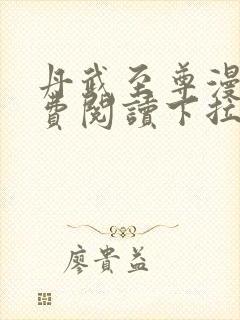 丹武至尊漫
費閱讀下拉
廖貴益